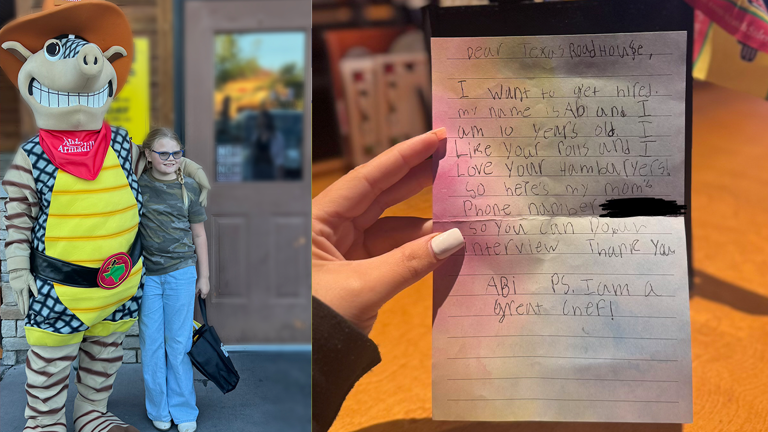 Andy
Armadillo
Dear Texas RoadHouse,
I want to get hired.
my name is Abi and I
am 10 years old. I
Like your rolls and I
Love your Hamburgers.
So here's my mom's
Phone number
So you can Do our
interview Thank you
ABi PS. I am a
great chef!